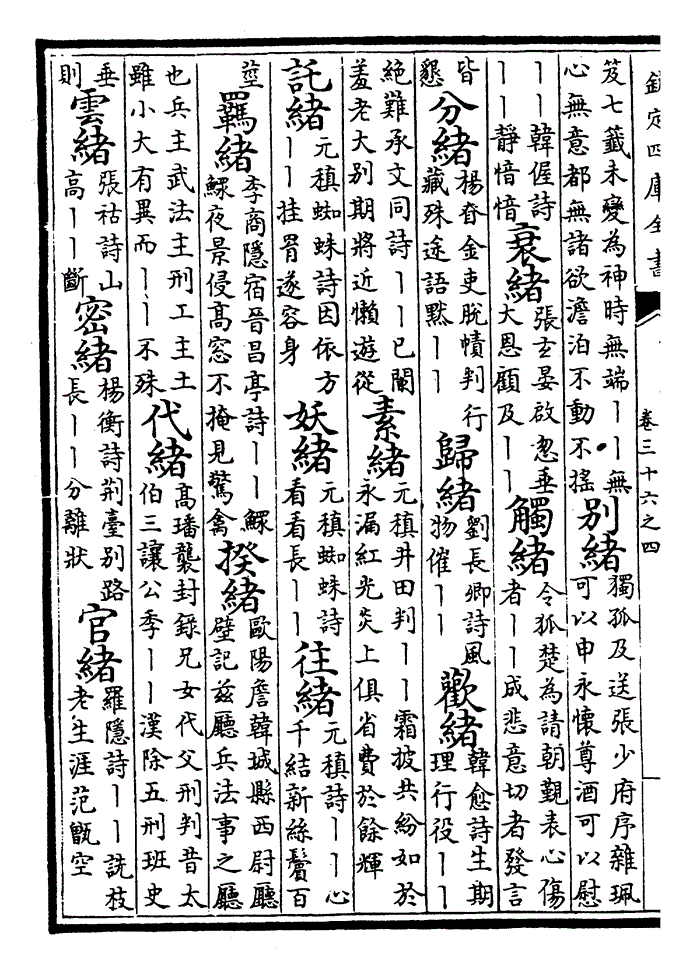 欽定四庫全書
卷三十六之四
笈七籤未變為神時無端丨丨無
心無意都無諸欲澹泊不動不搖
別緒
獨孤及送張少府序雜珮
可以申永懷尊酒可以慰
丨丨韓偓詩
丨丨靜愔愔
衰緒
張士晏啟忽垂
大恩顧及丨丨
觸緒
令狐楚為請朝覲表心傷
者丨丨成悲意切者發言
皆
懇
分緒
楊眘金吏脫幘判行
藏殊途語黙丨丨
歸緒
劉長卿詩風
物催丨丨
歡緒
韓愈詩生期
理行役丨丨
絶難承文同詩丨丨已闌
羞老大别期將近懶遊從
素緒
元稹井田判丨丨霜披共紛如於
永漏紅光炎上俱省費於餘輝
託緒
元稹蜘蛛詩因依方
丨丨挂罥遂容身
妖緒
元稹蜘蛛詩
看看長丨丨
往緒
元稹詩丨丨心
千結新絲鬢百
莖
羈緒
李商隱宿晉昌亭詩丨丨鰥
鰥夜景侵髙窓不掩見驚禽
揆緒
歐陽詹韓城縣西尉廳
壁記兹廳兵法事之廳
也兵主武法主刑工主土
雖小大有異而丨丨不殊
代緒
高璠襲封録兄女代父刑判昔太
伯三讓公季丨丨漢除五刑班史
垂
則
雲緒
張祜詩山
高丨丨斷
密緒
楊衡詩荆臺别路
長丨丨分離狀
官緒
羅隱詩丨丨詵枝
老生涯范甑空